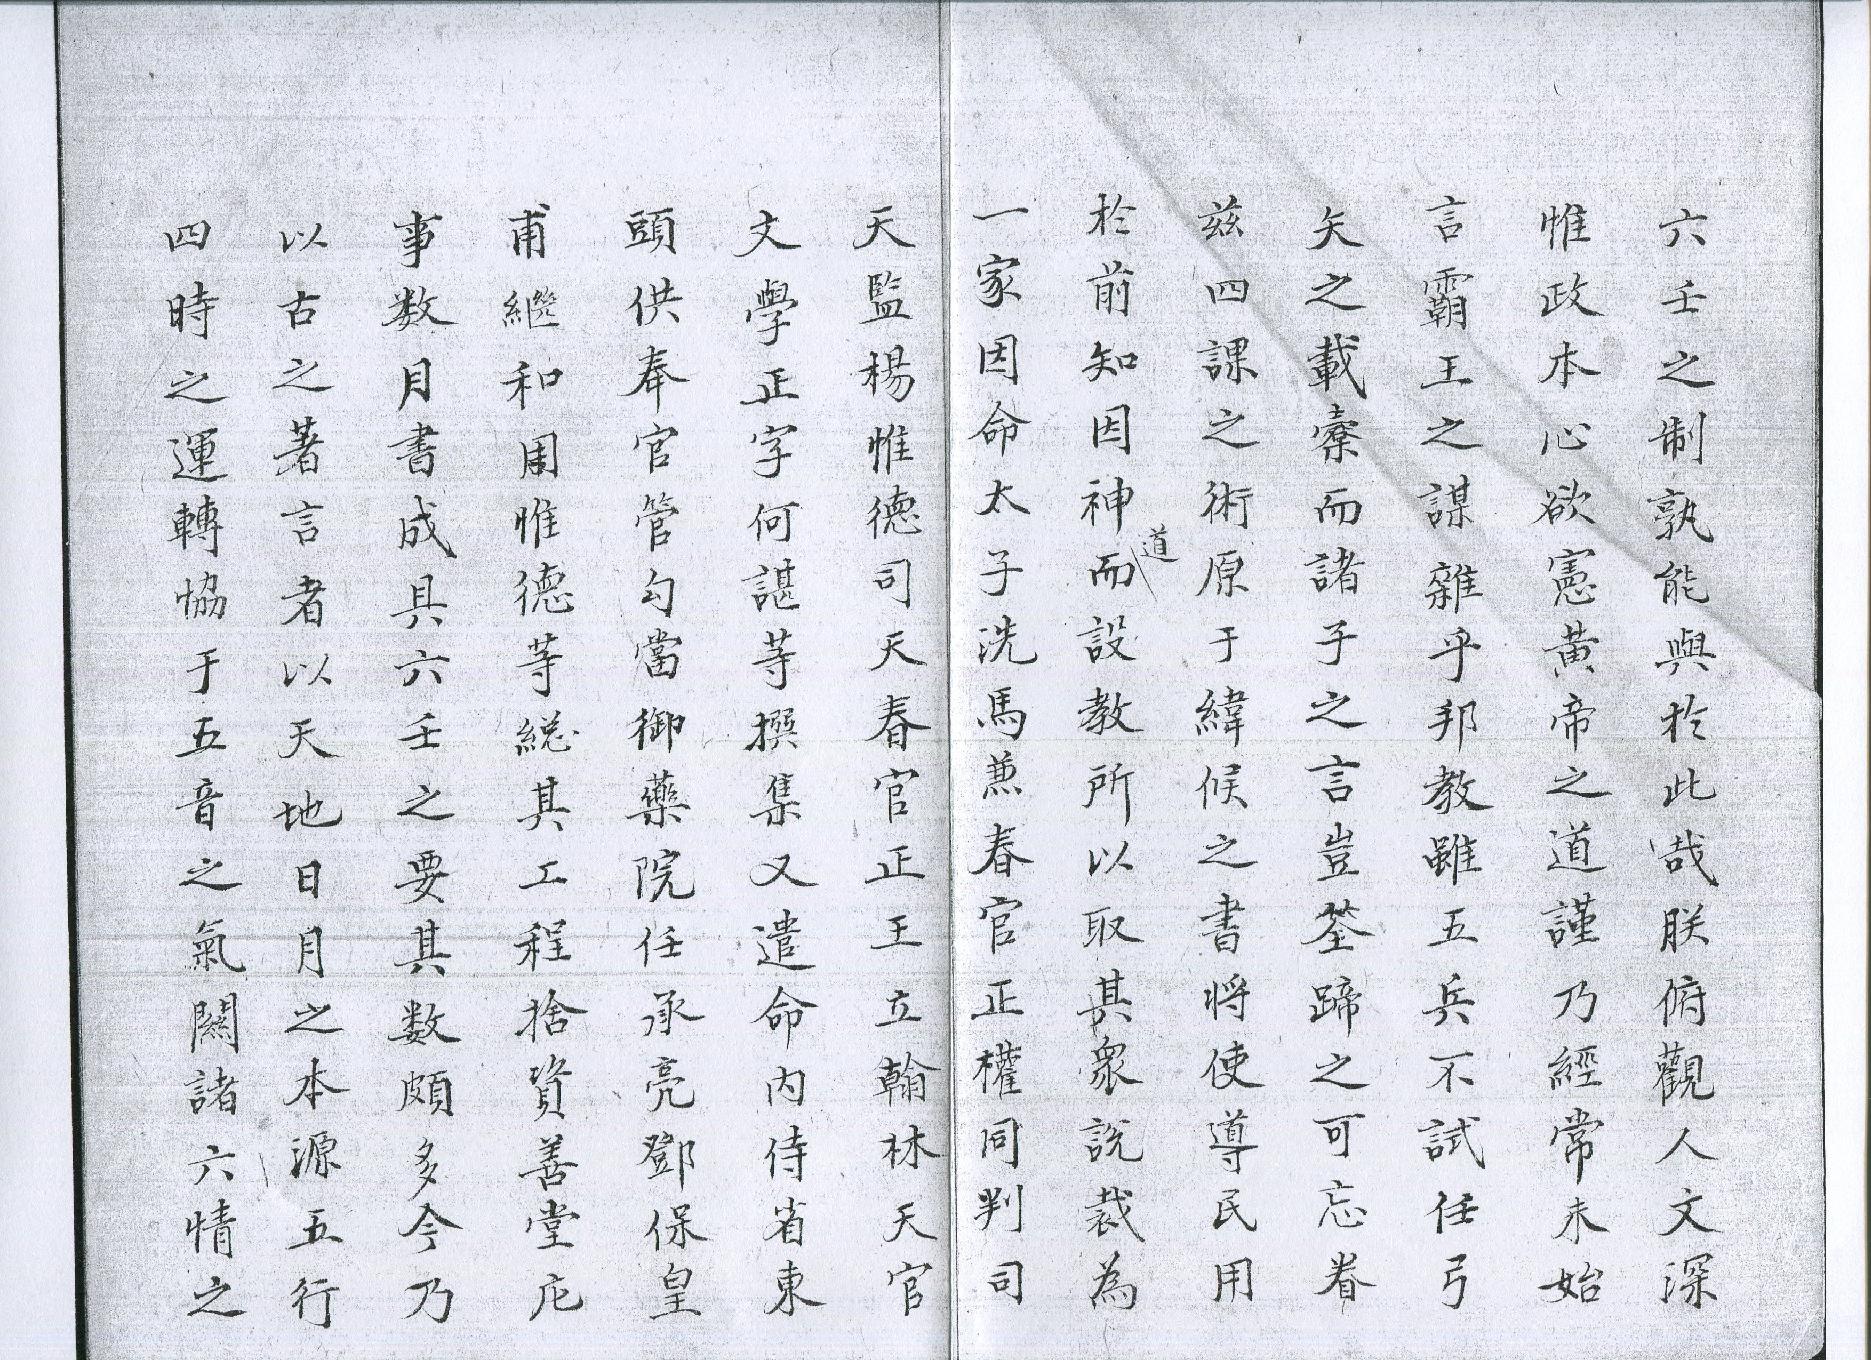 六壬之制孰能與於此哉朕俯觀人文深
惟政本心欲憲黃帝之道謹乃經常未始
言霸王之謀雜乎邦教雖五兵不試任弓
矢之載櫜而諸子之言豈荃蹄之可忘眷
茲四課之術原于緯候之書將使導民用
於前知因神道而設教所以取其衆說裁為
一家因命太子洗馬兼春官正權同判司
天監楊惟德司天春官正王立翰林天官
文學正字何諶等撰集又遣命内侍省東
頭供奉官管勾當御藥院任承亮鄧保皇
甫繼和周惟德等総其工程捨資善堂庀
事数月書成具六壬之要其数頗多今乃
以古之著言者以天地日月之本源五行
四時之運轉恊于五音之氣關諸六情之